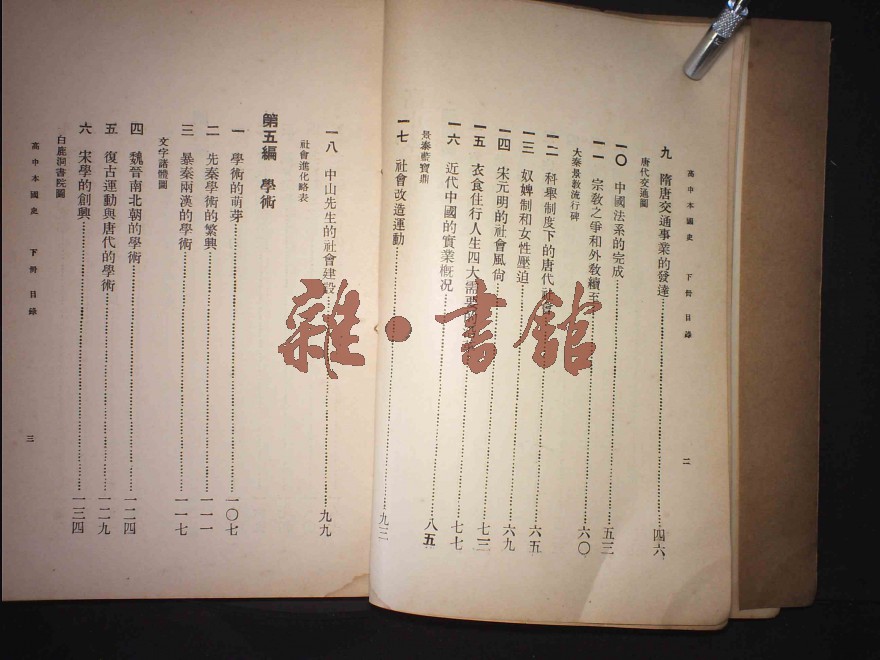 高中本國史 下冊 目錄 二
九 隋唐交通事業的發達……四六
唐代交通圖
一〇 中國法系的完成……五三
一一 宗教之爭和外教續至……六〇
大秦景教流行碑
一二 科舉制度下的唐代社會……六五
一三 奴婢制和女性壓迫……六九
一四 宋元明的社會風尚……七三
一五 衣食住行人生四大需要……七七
一六 近代中國的實業概況……八五
景泰藍寶鼎
一七 社會改造運動……九三
一八 中山先生的社會建設……九九
社會進化略表
第五編 學術
一 學術的萌芽……一〇七
二 先秦學術的繁興……一一一
三 暴秦兩漢的學術……一一七
文字諸體圖
四 魏晉南北朝的學術……一二四
五 復古運動與唐代的學術……一二九
六 宋學的創興……一三四
白鹿洞書院圖
高中本國史 下冊 目錄 三
雜·書館